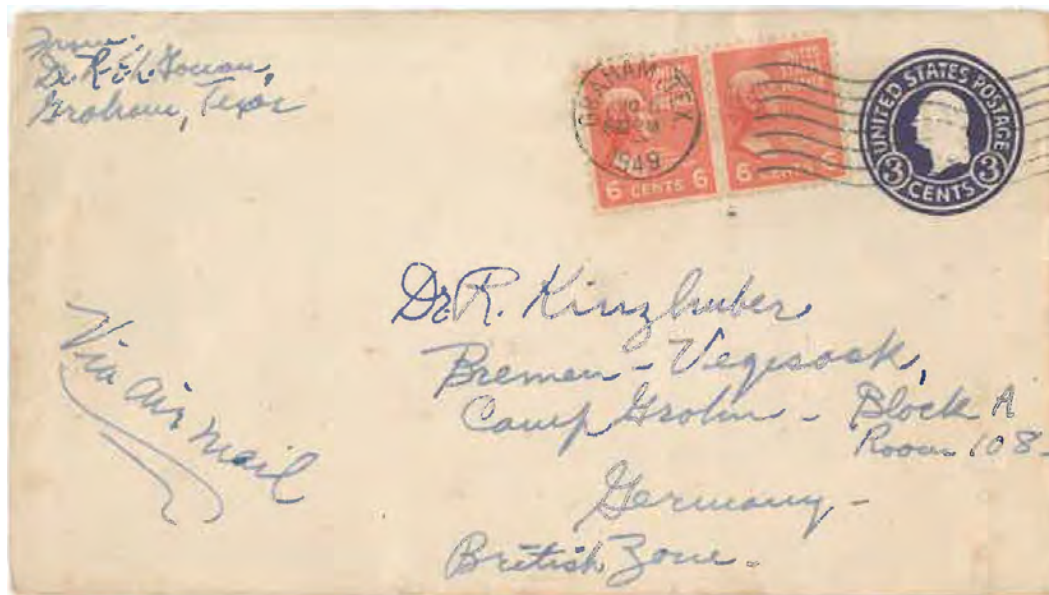 From:
Dr. R. E. L. Gowan,
Graham, Texas
GRAHAM, TEX.
1949
6 CENTS 6
6 CENTS 6
UNITED STATES POSTAGE
3 CENTS 3
Dr. R. Kinzhuber
Bremen - Vegesack,
Camp Grohn - Block A
Room 108 -
Via air mail
Germany -
British Zone.